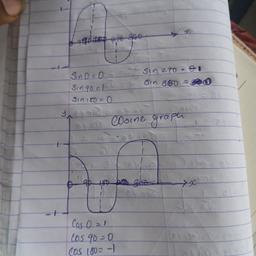 1
0 90 180 270 360 x
-1
Sin 0 = 0 Sin 270 = -1
Sin 90 = 1 Sin 360 = 0
Sin 180 = 0
y
Cosine graph
1
0 90 180 x
-1
Cos 0 = 1
Cos 90 = 0
Cos 180 = -1